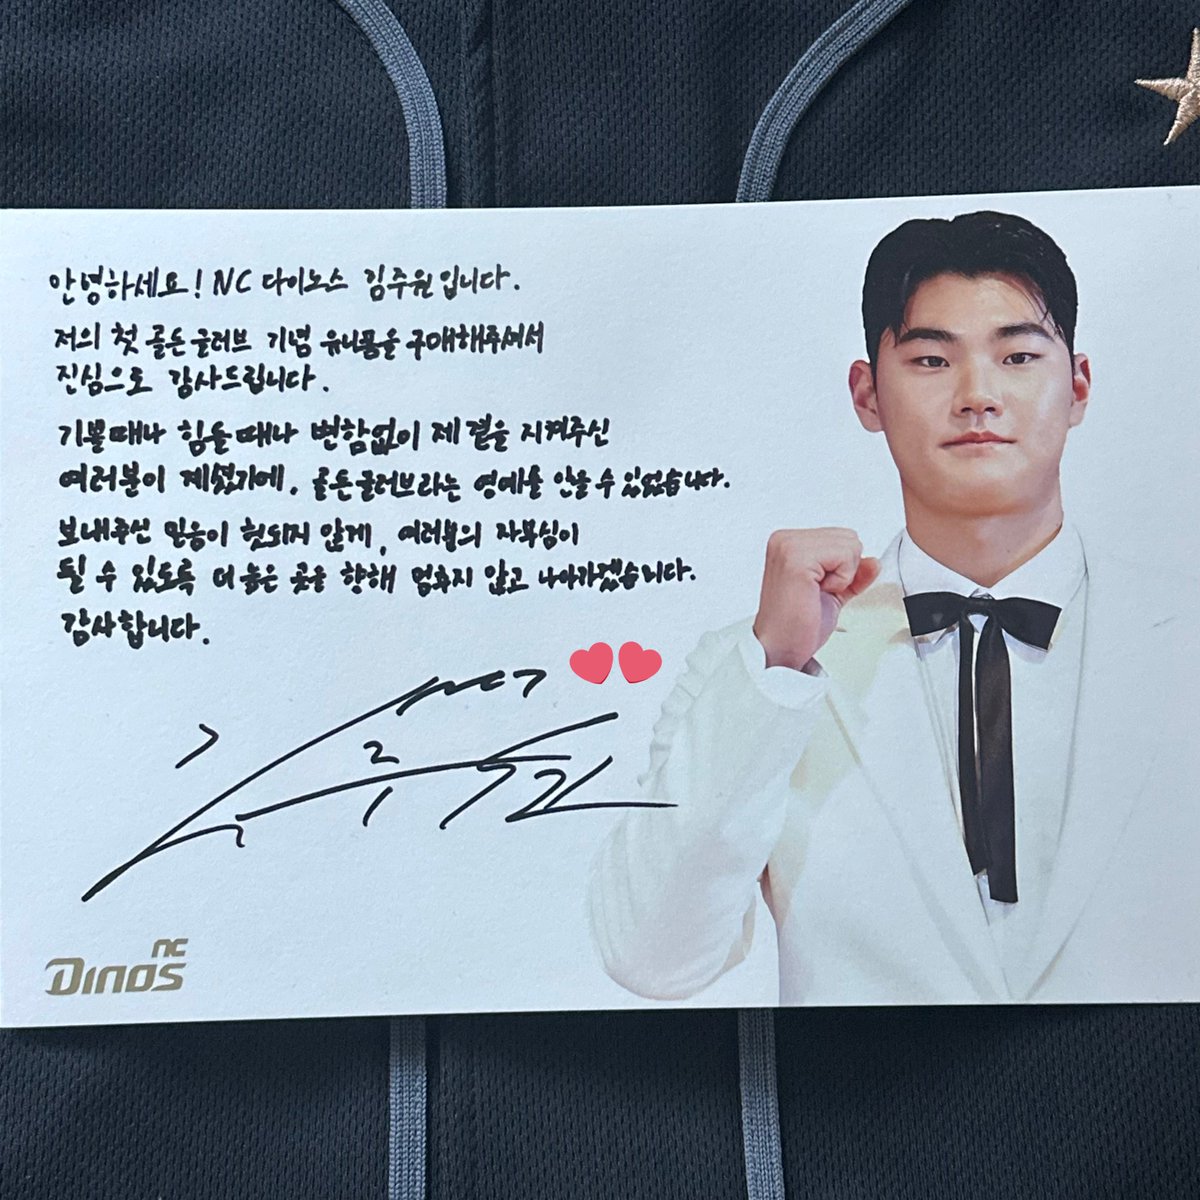 안녕하세요! NC 다이노스 김주원입니다.
저의 첫 골든글러브 기념 유니폼을 구매해주셔서
진심으로 감사드립니다.
기쁠때나 힘들때나 변함없이 제 곁을 지켜주신
여러분이 계셨기에, 골든글러브라는 영예를 안을 수 있었습니다.
보내주신 믿음이 헛되지 않게, 여러분의 자부심이
될 수 있도록 더 높은 곳을 향해 멈추지 않고 나아가겠습니다.
감사합니다.
NC
DINOS